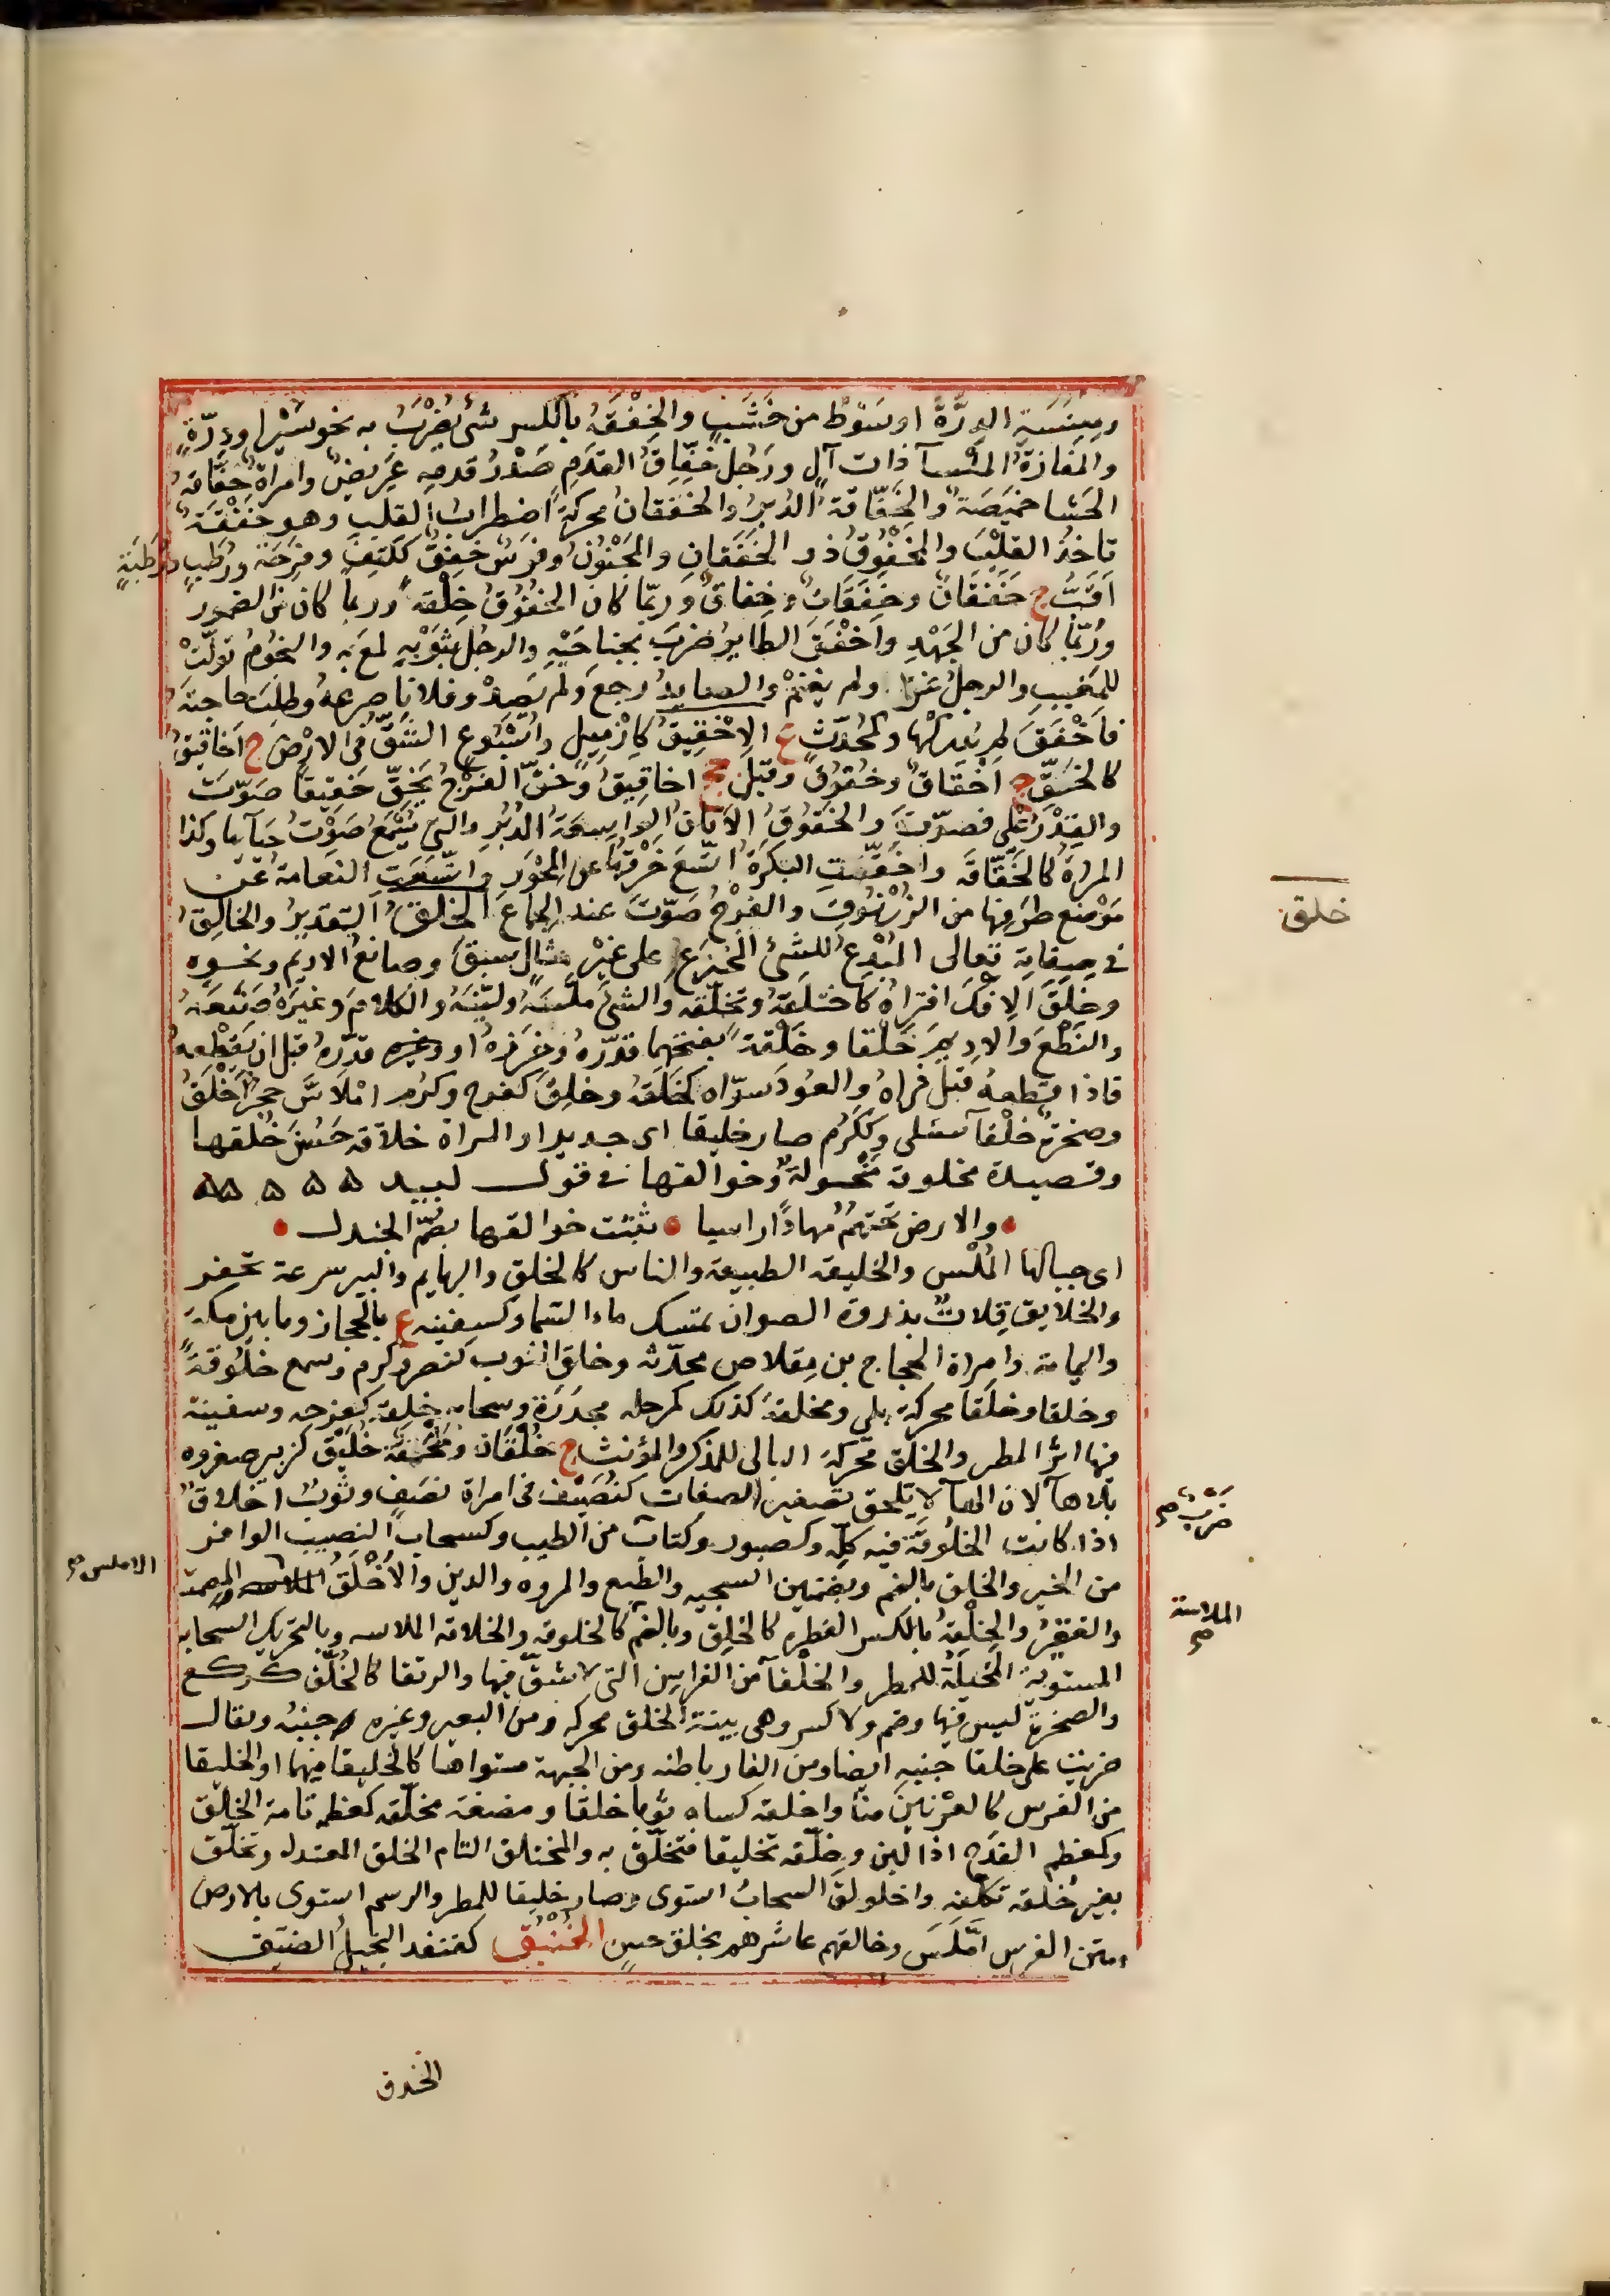 وكمكنسة الدرّة او سَوْطٌ من خَشَبٍ والخِفْقَة بالكسر شئ يُضْرَبُ به نحو سَيْرٍ او دِرَّةٍ
والمفازة المَلْسآ ذات آلٍ ورَجُل خَفّاقُ القَدَمِ صَدْرُ قدمِهِ عَرِيضٌ وامراة خفّاقة
الحَشا خَمِيصَة والخَفّاقة الدُبُرُ والخفقان محركة اضطراب القلب وهو خَفْقَة
تاخذ القلْبَ والمَخْفُوقُ ذو الخَفَقانِ والمَجْنُونُ وفرَسٌ خَفِقٌ ككَتِفٍ وفَرِحَة ورُطَبٍ ورُطَبَةٍ
اقَبُّ ج خَفِقَاتٌ وخُفَقَاتٌ وخِفاقٌ ورُبّما كان الخُفُوقُ خِلْقَة وربما كان من الضمور
ورُبّما كان من الجَهْدِ واَخْفَقَ الطاير ضرَبَ بجناحَيْهِ والرجُل بثَوْبِهِ لمَعَ به والنجومُ تَولّتْ
للمغيبِ والرجلُ غزا ولم يغنَمْ والصايدُ رجعَ ولم يَصِدْ وفلانا صرعهُ وطلَبَ حاجتَهُ
فاَخْفَقَ لم يُدْرِكْها والمُحدّث ع الاِخْقِيقُ كازْمِيلٍ واُسْبُوعٍ الشَقُّ فى الارْضِ ج اَخَاقِيقُ
كالخَقِّ ج اَخْقاقٌ وخُقُوقٌ وقيل جج اخاقِيقُ وخَقّ الفَرْجُ يَخِقّ خَقِيقًا صَوَّتَ
والقِدْرُ غلى فصوّتَ والخَقُوقُ الاَتانُ الواسِعَةُ الدُبُرِ والتى يُسْمَعُ صَوْتُ حيآئها وكذا
المراة كالخَقّاقَة واخَقّتِ البَكَرَة اتّسَعَ خَرْقُها عن المِحْوَرِ واتّسَعَتِ النعامة عن
مَوْضِع طرَفِها من الزُرْنُوقِ والفَرْجُ صَوّتَ عند الجماع الخَلْقُ التقديرُ والخالِقُ
فى صِفاتِه تعالى المُبْدِعُ للشئِ المُخْترِعُ على غيْرِ مِثالٍ سبقَ وصانعُ الاديمِ ونحوِه
وخلَقَ الاِفْكَ افتراهُ كاختلَقَهُ وتخلّقَه والشئَ ملّسَهُ وليّنَهُ والكلامَ وغيرَهُ صنَعَهُ
والنَطْعَ والاديمَ خَلْقا وخَلْقَة بفتحهما قدّرهُ وخرَزهُ او قدّرهُ قبلَ ان يَقْطعه
فاذا قطعه قيل فراهُ والعُودَ سوّاه كخَلّقَهُ وخلِقَ كفرح وكرُم امْلاسَّ حجرٌ اَخْلَقُ
وصخرَة خَلْقآ وككَرُم صار خليقا اى جديرا والمراة خلاقة حَسُنَ خُلُقُها
وقصيدة مخلوقة مَنْحولةٌ وخوالقها فى قول لبيد
والارض تحتَهُم مهادًا راسيا ثبتت خوالقها بصُمّ الجندل
اى جبالها المُلْس والخليقة الطبيعة والناس كالخلق والبهايم والبير سرعة تحفر
والخلايق قِلاتٌ بذروة الصوان تمسك ماء السّما وكسفينه ع بالحجاز وما بين مكة
واليمامة وامراة الحجاج بن مِقلاص محدّثه وخلق الثوب كنصر وكرم وسمع خلُوقةً
وخلقا وخلَقا محركة بلى ومخلقة كذلك كمرحله مجدرة وسحابه خلِقة كفرحه وسفينة
فيها اثر المطر والخلَق محركة البالى للمذكر والمؤنث ج خُلْقَان ومِلْحَفة خُلَيْق كزبير صغروه
بلاهآ لان الهآ لا تلحق تصغير الصفات كنُصَيْف فى امراة نصَف وثوبٌ اخلاقٌ
اذا كانت الخلُوقَة فيه كلّه وكصبور وكتاب ضرب من الطيب وكسحاب النصيب الوافر
من الخير والخلق بالضم وبضمتين السجيه والطبع والمروه والدين والاَخْلَقُ الاملس المصمت
والفقيرُ والخِلْقةُ بالكسر الفطره كالخلق وبالضم الملاسة كالخلوقه والخلاقه الملاسه وبالتحريك السحابه
المستوية المُخيلة للمطر والخلقآ من الفراسن التى لا شقّ فيها والرتقا كالخُلّق كركع
والصخرة ليس فيها وصم ولا كسر وهى بينة الخلق محركه ومن البعير وغيره جنبُه ويقال
ضربت على خلقا جنبِه ايضا ومن الغار باطنه ومن الجبهة مستواها كالخُليقا فيهما او الخليقا
من الفرس كالعِرْنينِ منّا واخلقه كساه ثوبا خلقا ومضغة مخلّقه كمعظمه تامة الخلق
وكمعظم القدح اذا ليّن وخلّقه تخليقا فتخلّق به والمختلق التام الخلق المعتدله وتخلّق
بغير خُلقه تكلّفه واخلولق السحابُ استوى وصار خليقا للمطر والرسم استوى بالارض
ومتن الفرس امّلَسَ وخالقهم عاشرهم بخلق حسنٍ الخُنْبُق كقنفد البخيلُ الضيق
خلق
ضَرْبٌ صح
الملاسة صح
الاملس صح
الخندق